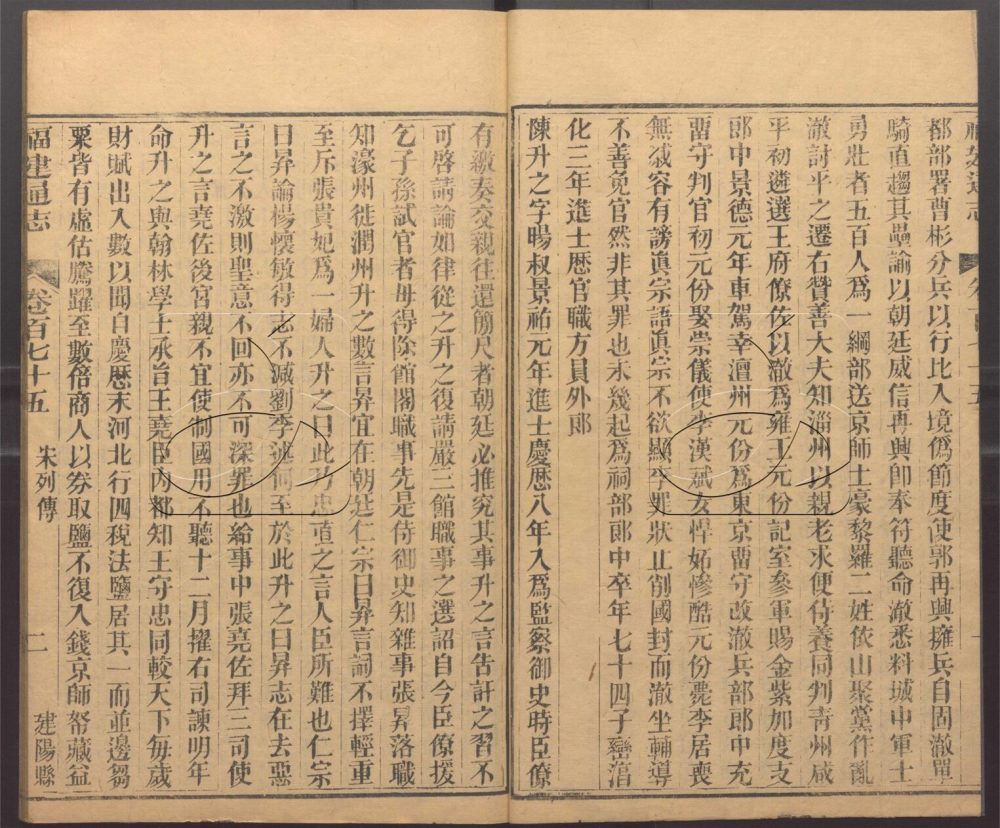 福建通志
都部署曹彬分兵以行比入境僞節度使郭再興擁兵自固澈單
騎直趨其壘諭以朝廷威信再興卽奉符聽命澈悉料城中軍士
勇壯者五百人爲一綱部送京師土豪黎羅二姓依山聚黨作亂
澈討平之遷右贊善大夫知淄州以親老求便侍養同判靑州咸
平初遴選王府僚佐以澈爲雍王元份記室參軍賜金紫加度支
郎中景德元年車駕幸澶州元份爲東京畱守改澈兵部郎中充
畱守判官初元份娶崇儀使李漢斌女悍妬慘酷元份薨李居喪
無慼容有謗眞宗語眞宗不欲顯李罪狀止削國封而澈坐輔導
不善免官然非其罪也未幾起爲祠部郎中卒年七十四子巒
化三年進士歴官職方員外郎
陳升之字暘叔景祐元年進士慶歴八年入爲監察御史時臣僚
有繳奏交親往還簡尺者朝廷必推究其事升之言告訐之習不
可啓請論如律從之升之復請嚴三館職事之選詔自今臣僚援
乞子孫試官者毋得除館閣職事先是侍御史知雜事張昪落職
知濠州徙潤州升之數言昪宜在朝廷仁宗曰昪言詞不擇輕重
至斥張貴妃爲一婦人升之曰此乃忠直之言人臣所難也仁宗
曰昪論楊懷敏得志不減劉季述何至於此升之曰昪志在去惡
言之不激則聖意不回亦不可深罪也給事中張堯佐拜三司使
升之言堯佐後宮親不宜使制國用不聽十二月擢右司諫明年
命升之與翰林學士承旨王堯臣內都知王守忠同較天下每歲
財賦出入數以聞自慶歴末河北行四稅法鹽居其一而並邊芻
粟皆有虛估騰躍至數倍商人以券取鹽不復入錢京師帑藏益
福建通志 卷百七十五 宋列傳 二 建陽縣